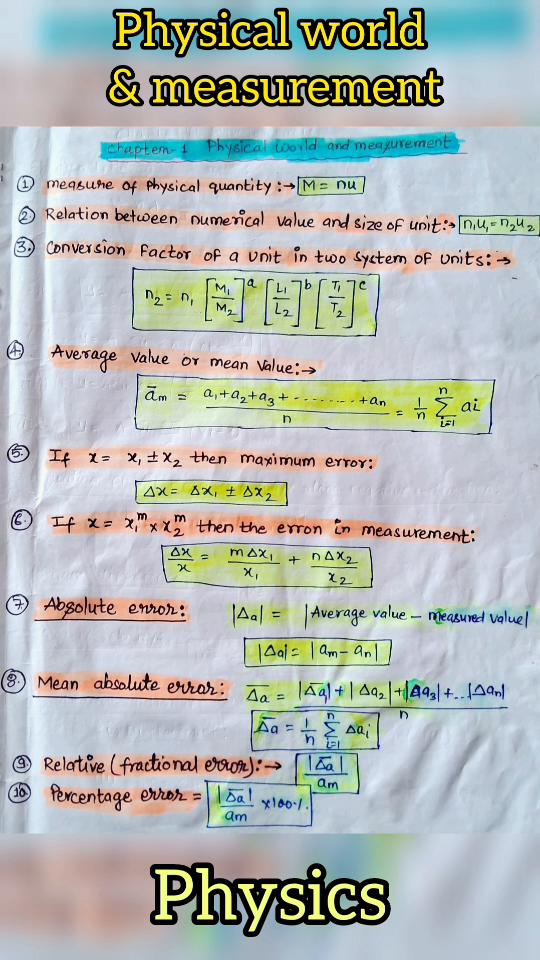 Physical world
& measurement
Chapter-1 Physical world and measurement
① measure of physical quantity :→ M = nu
② Relation between numerical value and size of unit:→ n₁u₁ = n₂u₂
③ Conversion factor of a unit in two system of units:→
n₂ = n₁ [M₁/M₂]ᵃ [L₁/L₂]ᵇ [T₁/T₂]ᶜ
④ Average value or mean value:→
ām = a₁+a₂+a₃+.........+an / n = 1/n Σⁿᵢ₌₁ ai
⑤ If x = x₁ ± x₂ then maximum error:
Δx = Δx₁ ± Δx₂
⑥ If x = x₁ᵐ × x₂ᵐ then the error in measurement:
Δx/x = mΔx₁/x₁ + nΔx₂/x₂
⑦ Absolute error: |Δa| = |Average value – measured value|
|Δa| = |am – an|
⑧ Mean absolute error: Δ̅a̅ = |Δa₁|+|Δa₂|+|Δa₃|+...|Δan| / n
Δ̅a̅ = 1/n Σⁿᵢ₌₁ Δaᵢ
⑨ Relative (fractional error):→ |Δ̅a̅| / am
⑩ Percentage error = |Δ̅a̅| / am ×100%
Physics